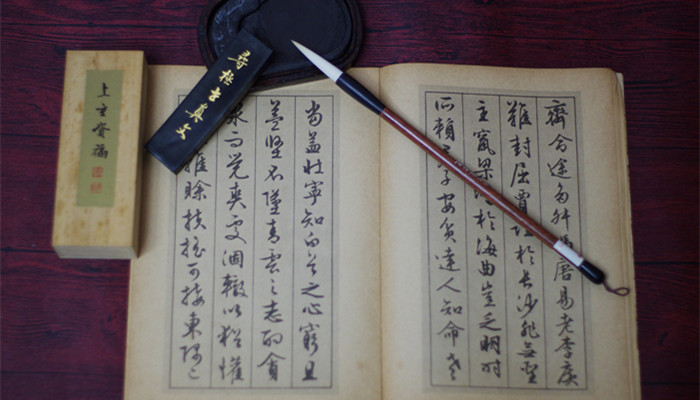 齊命途多舛馮唐易老李廣
難封屈賈誼於長沙非無聖
主竄梁於海曲豈乏明時
所賴子安貧達人知命老
當益壯寧知白首之心窮且
益堅不墜青雲之志酌貪
泉而覺爽處涸轍以猶懽
雖賒扶搖可接東隅已